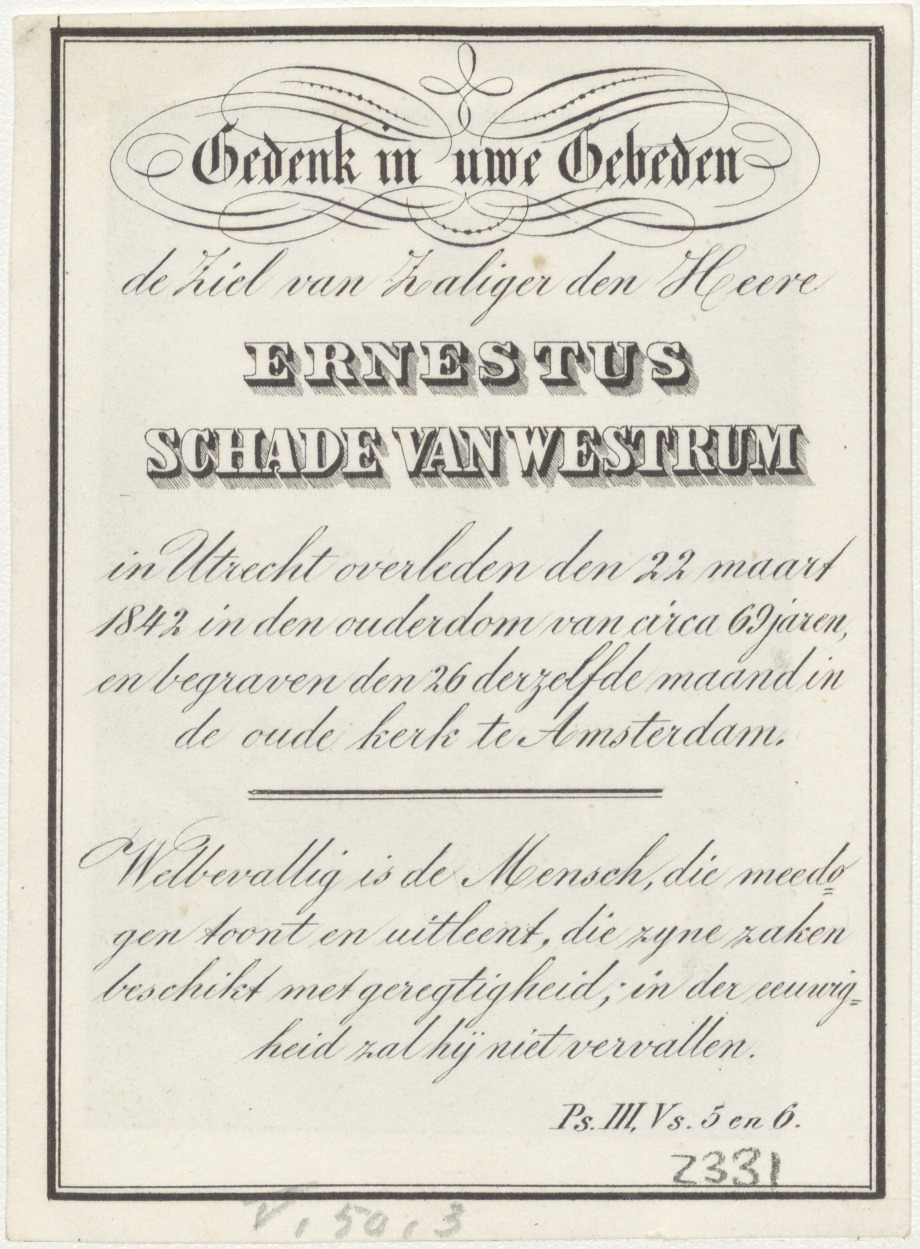 Gedenk in uwe Gebeden
de Ziel van Zaliger den Heere
ERNESTUS
SCHADE VAN WESTRUM
in Utrecht overleden den 22 maart
1842 in den ouderdom van circa 69 jaren,
en begraven den 26 derzelfde maand in
de oude kerk te Amsterdam.
Welbevallig is de Mensch, die meedo=
gen toont en uitleent, die zyne zaken
beschikt met geregtigheid; in der eeuwig=
heid zal hij niet vervallen.
Ps. III, Vs. 5 en 6.
2331
V, 50, 3